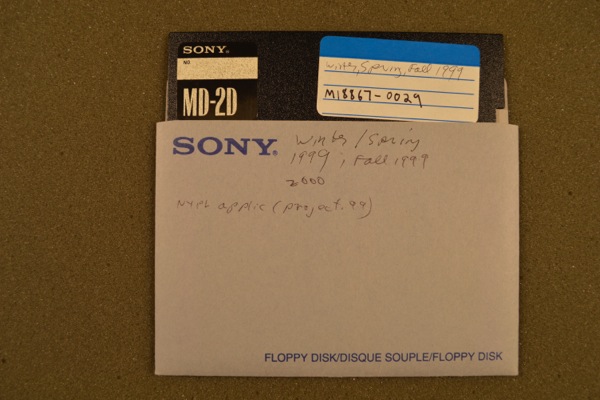 SONY
NO
MD-2D
Winter, Spring, Fall 1999
M18867-0029
SONY®
Winter/Spring
1999, Fall 1999
2000
NYPL applic (project.99)
FLOPPY DISK/DISQUE SOUPLE/FLOPPY DISK